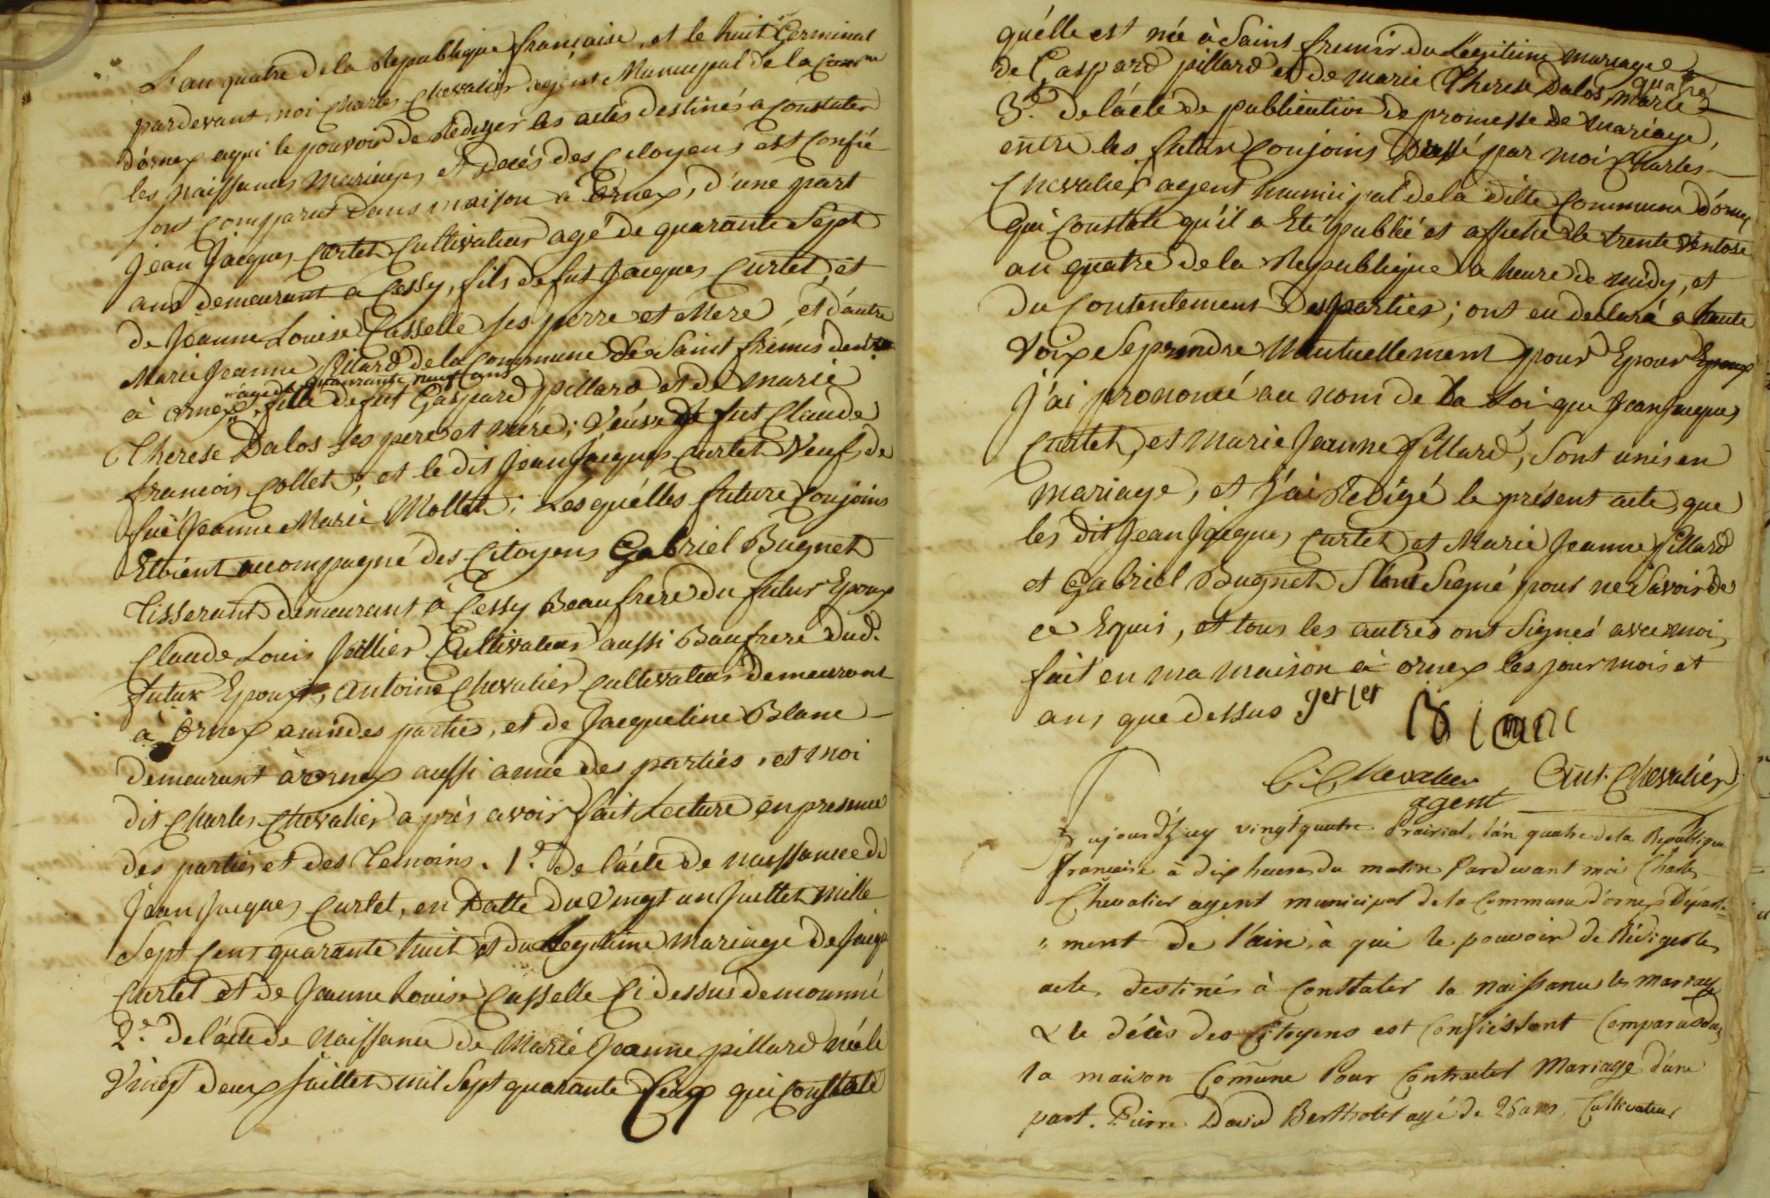 L'an quatre de la Republique française, et le huit Germinal
pardevant moi Charles Chevalier agent Municipal de la Comne
d'ornex aqui le pouvoir de Rediger les actes destinés a Constater
les naissances Mariages et Decés des Citoyens est Confié
sont Comparut dans maison a Ornex, d'une part
Jean Jacques Curtet Cultivateur agé de quarante Sept
ans demeurant a Cessy, fils de fut Jacques Curtet, et
de Jeanne Louise Casselle ses perre et Mere, et d'autre
Marie Jeanne Pillard de la Commune de Saint fremis
agée de quaurante neuf ans
à ornex, fille de fut Gaspard pillard et de marie
Therese Dalos ses pere et mére; Veuve de fut Claude
francois Collet, et le dit Jean Jacques Curtet Veuf de
fuë Jeanne Marie Mottet; Lesquélles future Conjoins
Etoient accompagné des Citoyens Gabriel Bugnet
Tisserant demeurant à Cessy Beaufrere du futur Epoux
Claude Louis Jaillier Cultivateur aussi Baufrere dud.
futur Epoux, Antoine Chevalier Cultivateur demeurant
à Ornex amis des parties, et de Jacqueline Blanc
demeurant à ornex aussi amie des parties, et moi
dit Charles Chevalier après avoir fait Lecture en presence
des parties et des Temoins. 1.° de l'acte de naissance de
Jean Jacques Curtet, en Datte du Vingt un Juillet mille
Sept Cens quarante huit et du Legitime mariage de Jacq
Curtet et de Jeanne Louise Casselle Ci dessus demommé
2.° de l'acte de Naissance de Marie Jeanne pillard née le
Vingt deux Juillet mil Sept quarante Cinq qui Constate
qu'elle est née à Saint fremir du Legitime mariage
de Gaspard pillard et de marie Therese Dalos
3.° de l'acte de publication de promesse de mariage
entre les futur Conjoins Dressé par moi Charles
Chevalier agent municipal de la ditte Commune d'ornex
qui Constate qu'il a Eté publié et affiché le trente Ventose
an quatre de la Republique a heure de midy, et
du Contentement Des parties; ont eu declaré a haute
Voix Se prendre Mutuellement pour Epour Epoux
J'ai prononcé au nom de la Loi que Jean Jacques
Curtet, et Marie Jeanne Pillard, Sont unis en
mariage, et J'ai Redigé le présent acte que
les dit Jean Jacques Curtet et Marie Jeanne Pillard
et Gabriel Bugnet Signé pour ne Savoir de
ce Equis, et tous les autres ont Signés avec moi,
fait en ma maison à ornex les jour mois et
ans que dessus
C. Chevalier Ant. Chevalier
agent
aujourd'huy vingt quatre Prairial, l'an quatre de la Republique
francaise à dix heures du matin Pardevant moi Charles
Chevalier agent municipal de la Commune d'ornex Départ=
=ment de l'ain, à qui le pouvoir de Rédiger les
acte, destinés à Constater la naissance les mariage
& le décès des Citoyens est Confié, sont Comparus dans
la maison Comune Pour Contracter Mariage d'une
part. Pierre David Bertholet agé de 26 ans, Cultivateur